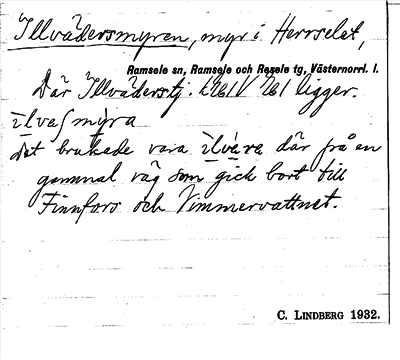 Illvädersmyren, myr i Herrselet,
Ramsele sn, Ramsele och Resele tg, Västernorrl. l.
Där Illväderstj. ligger.
ilvaſmýra
det brukade vara ilvéra där på en
gammal väg som gick bort till
Finnfors och Vimmervattnet.
C. LINDBERG 1932.